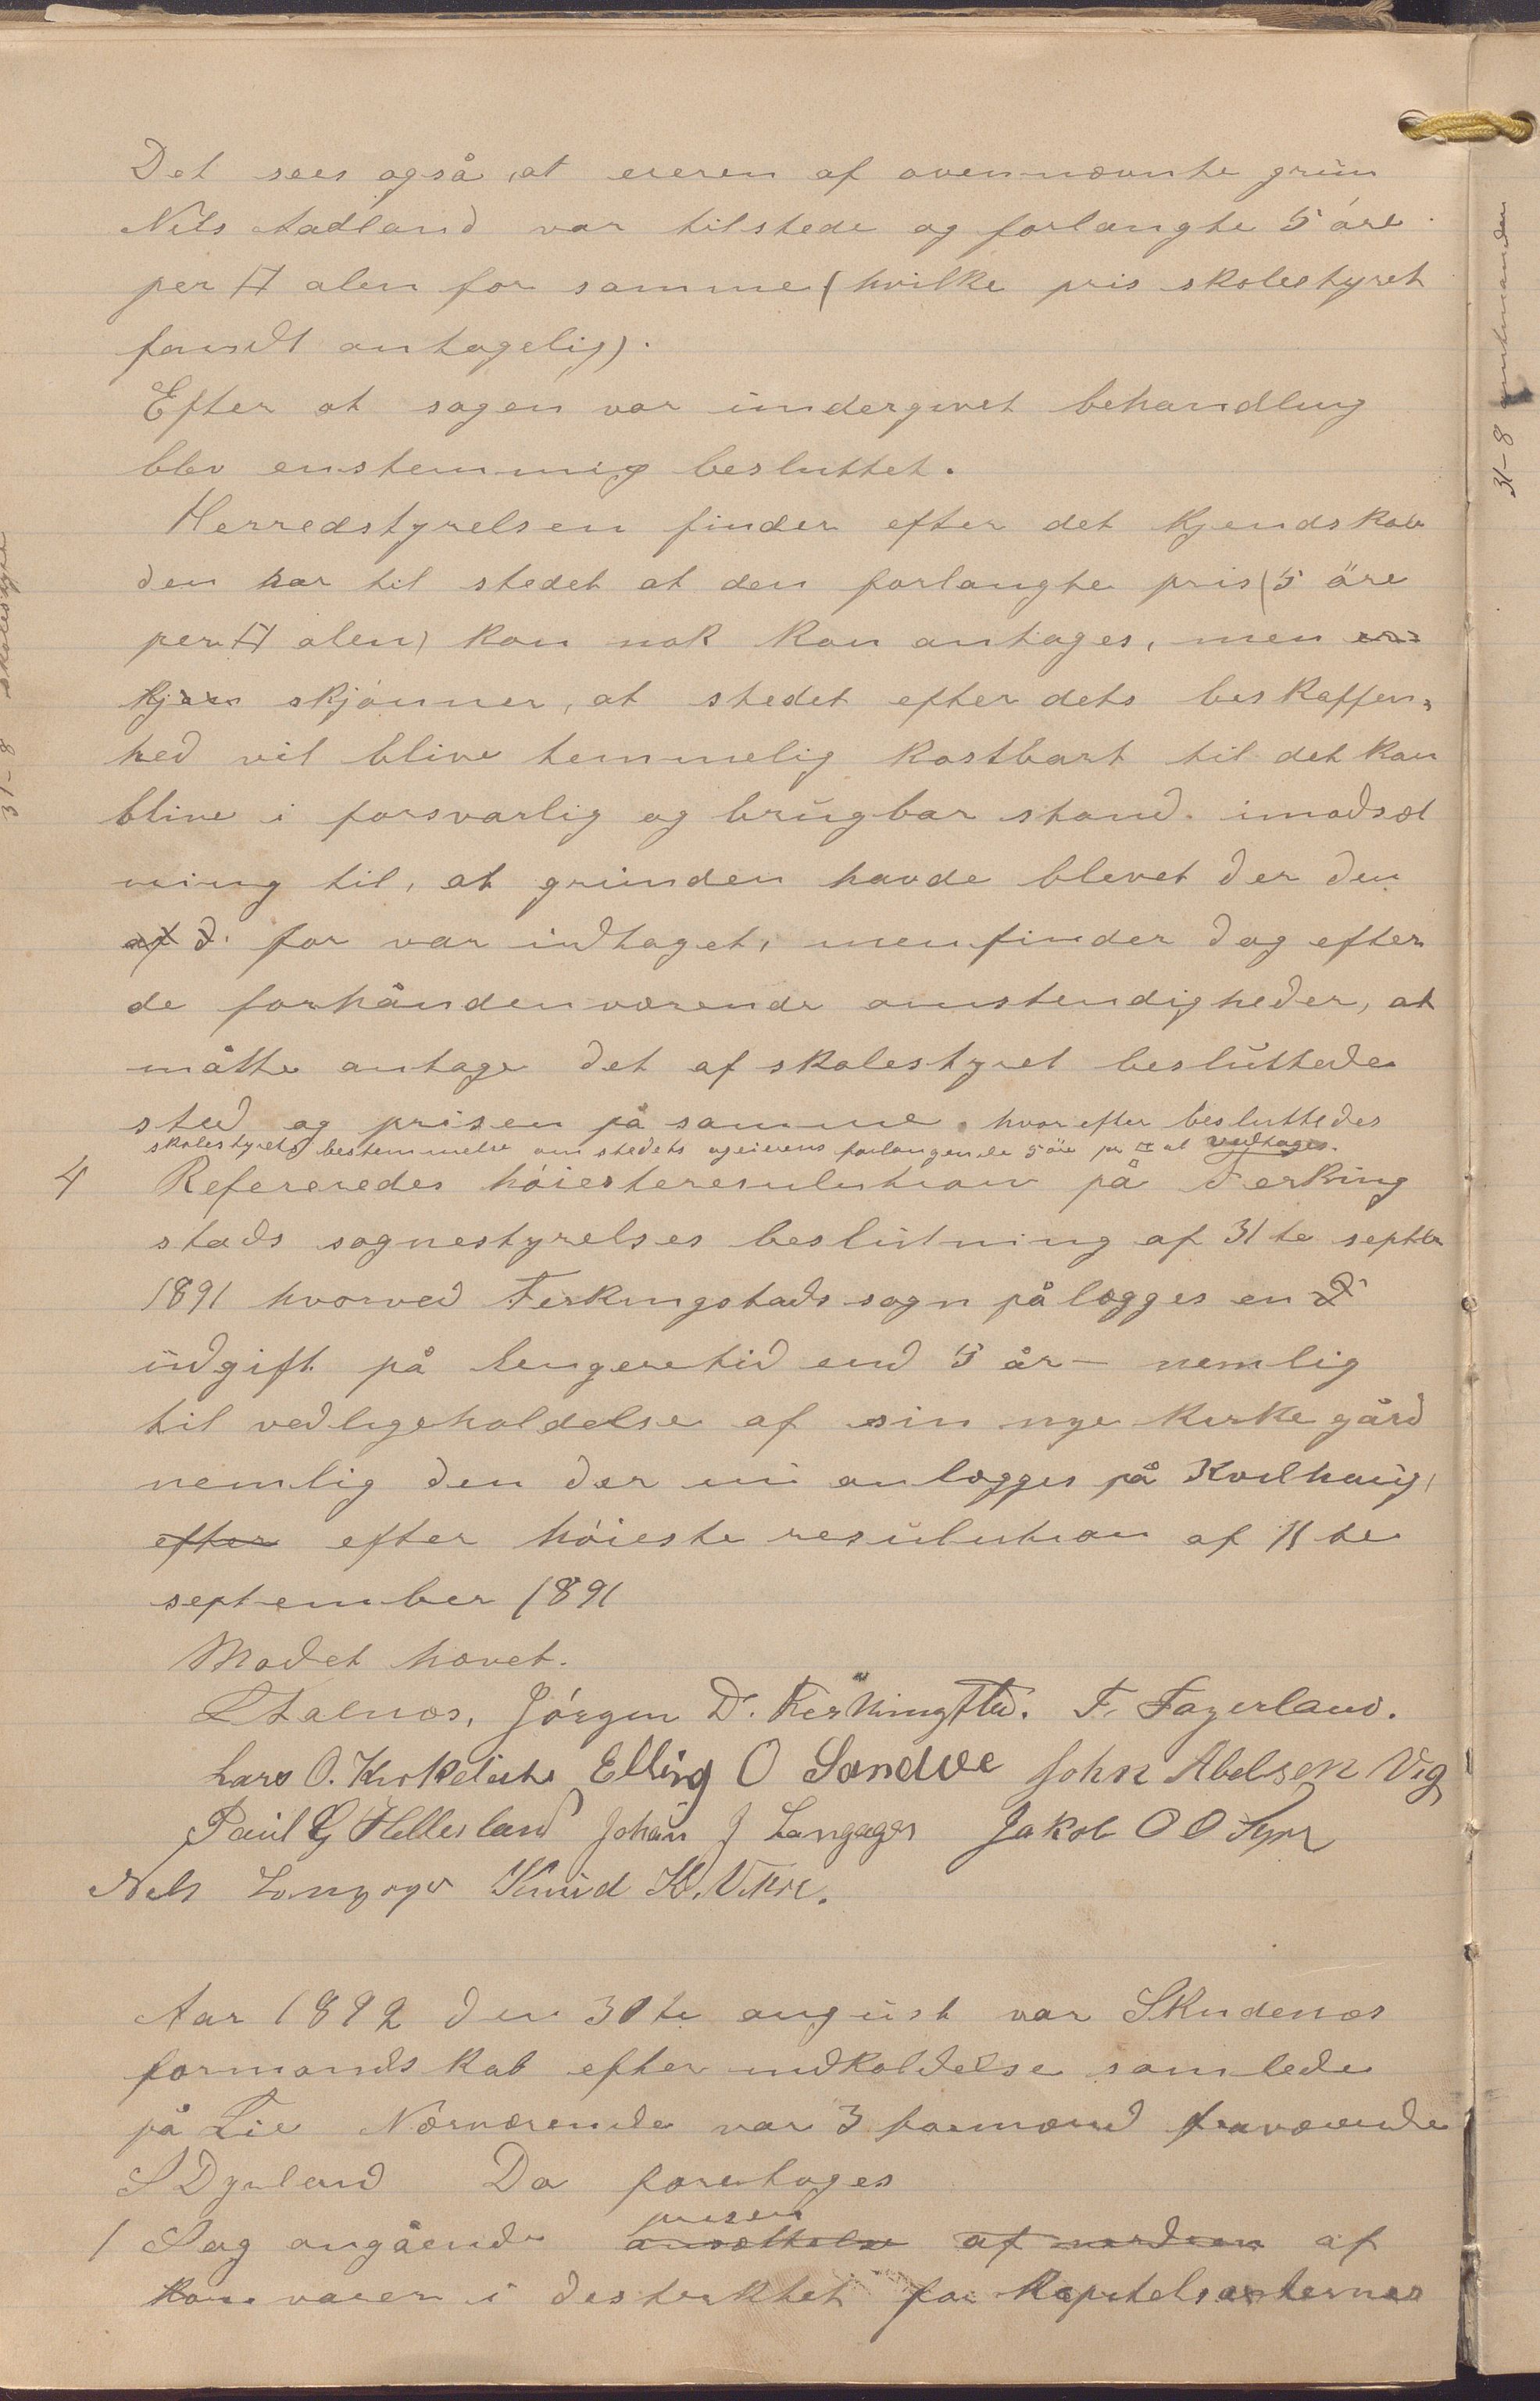 Det sees også, at eieren af ovennævnte grun
Nils Aadland var tilstede og forlangte 5 øre
per □ alen for samme (hvilke pris skolestyret
fandt antagelig).
Efter at sagen var undergivet behandling
blev enstemmig besluttet.
Herredstyrelsen finder efter det kjendskab
den har til stedet at den forlangte pris (5 öre
per □ alen) kan nok kan antages, men
skjønner, at stedet efter dets beskaffen=
hed vil blive temmelig kostbart til det kan
blive i forsvarlig og brugbar stand. imodsæt
ning til, at grunden havde blevet der den
af d. før var indtaget, men finder dog efter
de forhåndenværende omstendigheder, at
måtte antage det af skolestyret besluttede
sted og prisen på samme. hvorefter besluttedes
skolestyrets bestemmelse om stedets og eierens forlangende 5 øre pr □ al vedtages.
4 Refereredes høiesteresulution på Ferking
stads sognestyrelses beslutning af 31te septbr
1891 hvorved Ferkingstads sogn pålægges en
udgift på lengeretid end 5 år – nemlig
til vedligeholdelse af sin nye kirkegård
nemlig den der nu anlægges på Kvilhaug,
efter efter høieste resulution af 11te
september 1891
Mødet hævet.
Jørgen D. Ferkingstad. F. Fagerland.
Lars O. Krokeliche Elling O Sandve John Abelsen Vig
Paul G Hellesland Johan J Langager Jakob O O Syre
Nels Langager Knud K. Vikre.
Aar 1892 den 30te august var Skudenæs
formandskab efter indkaldelse samlede
på Lie Nærværende var 3 formænd fraværende
S Dyrland Da foretages
prisen
1 Sag angående ansættelse af værdien af
kornvarer i desterktet for Kapitelsterner
31-8 skolestyre
31-8 amtmanden